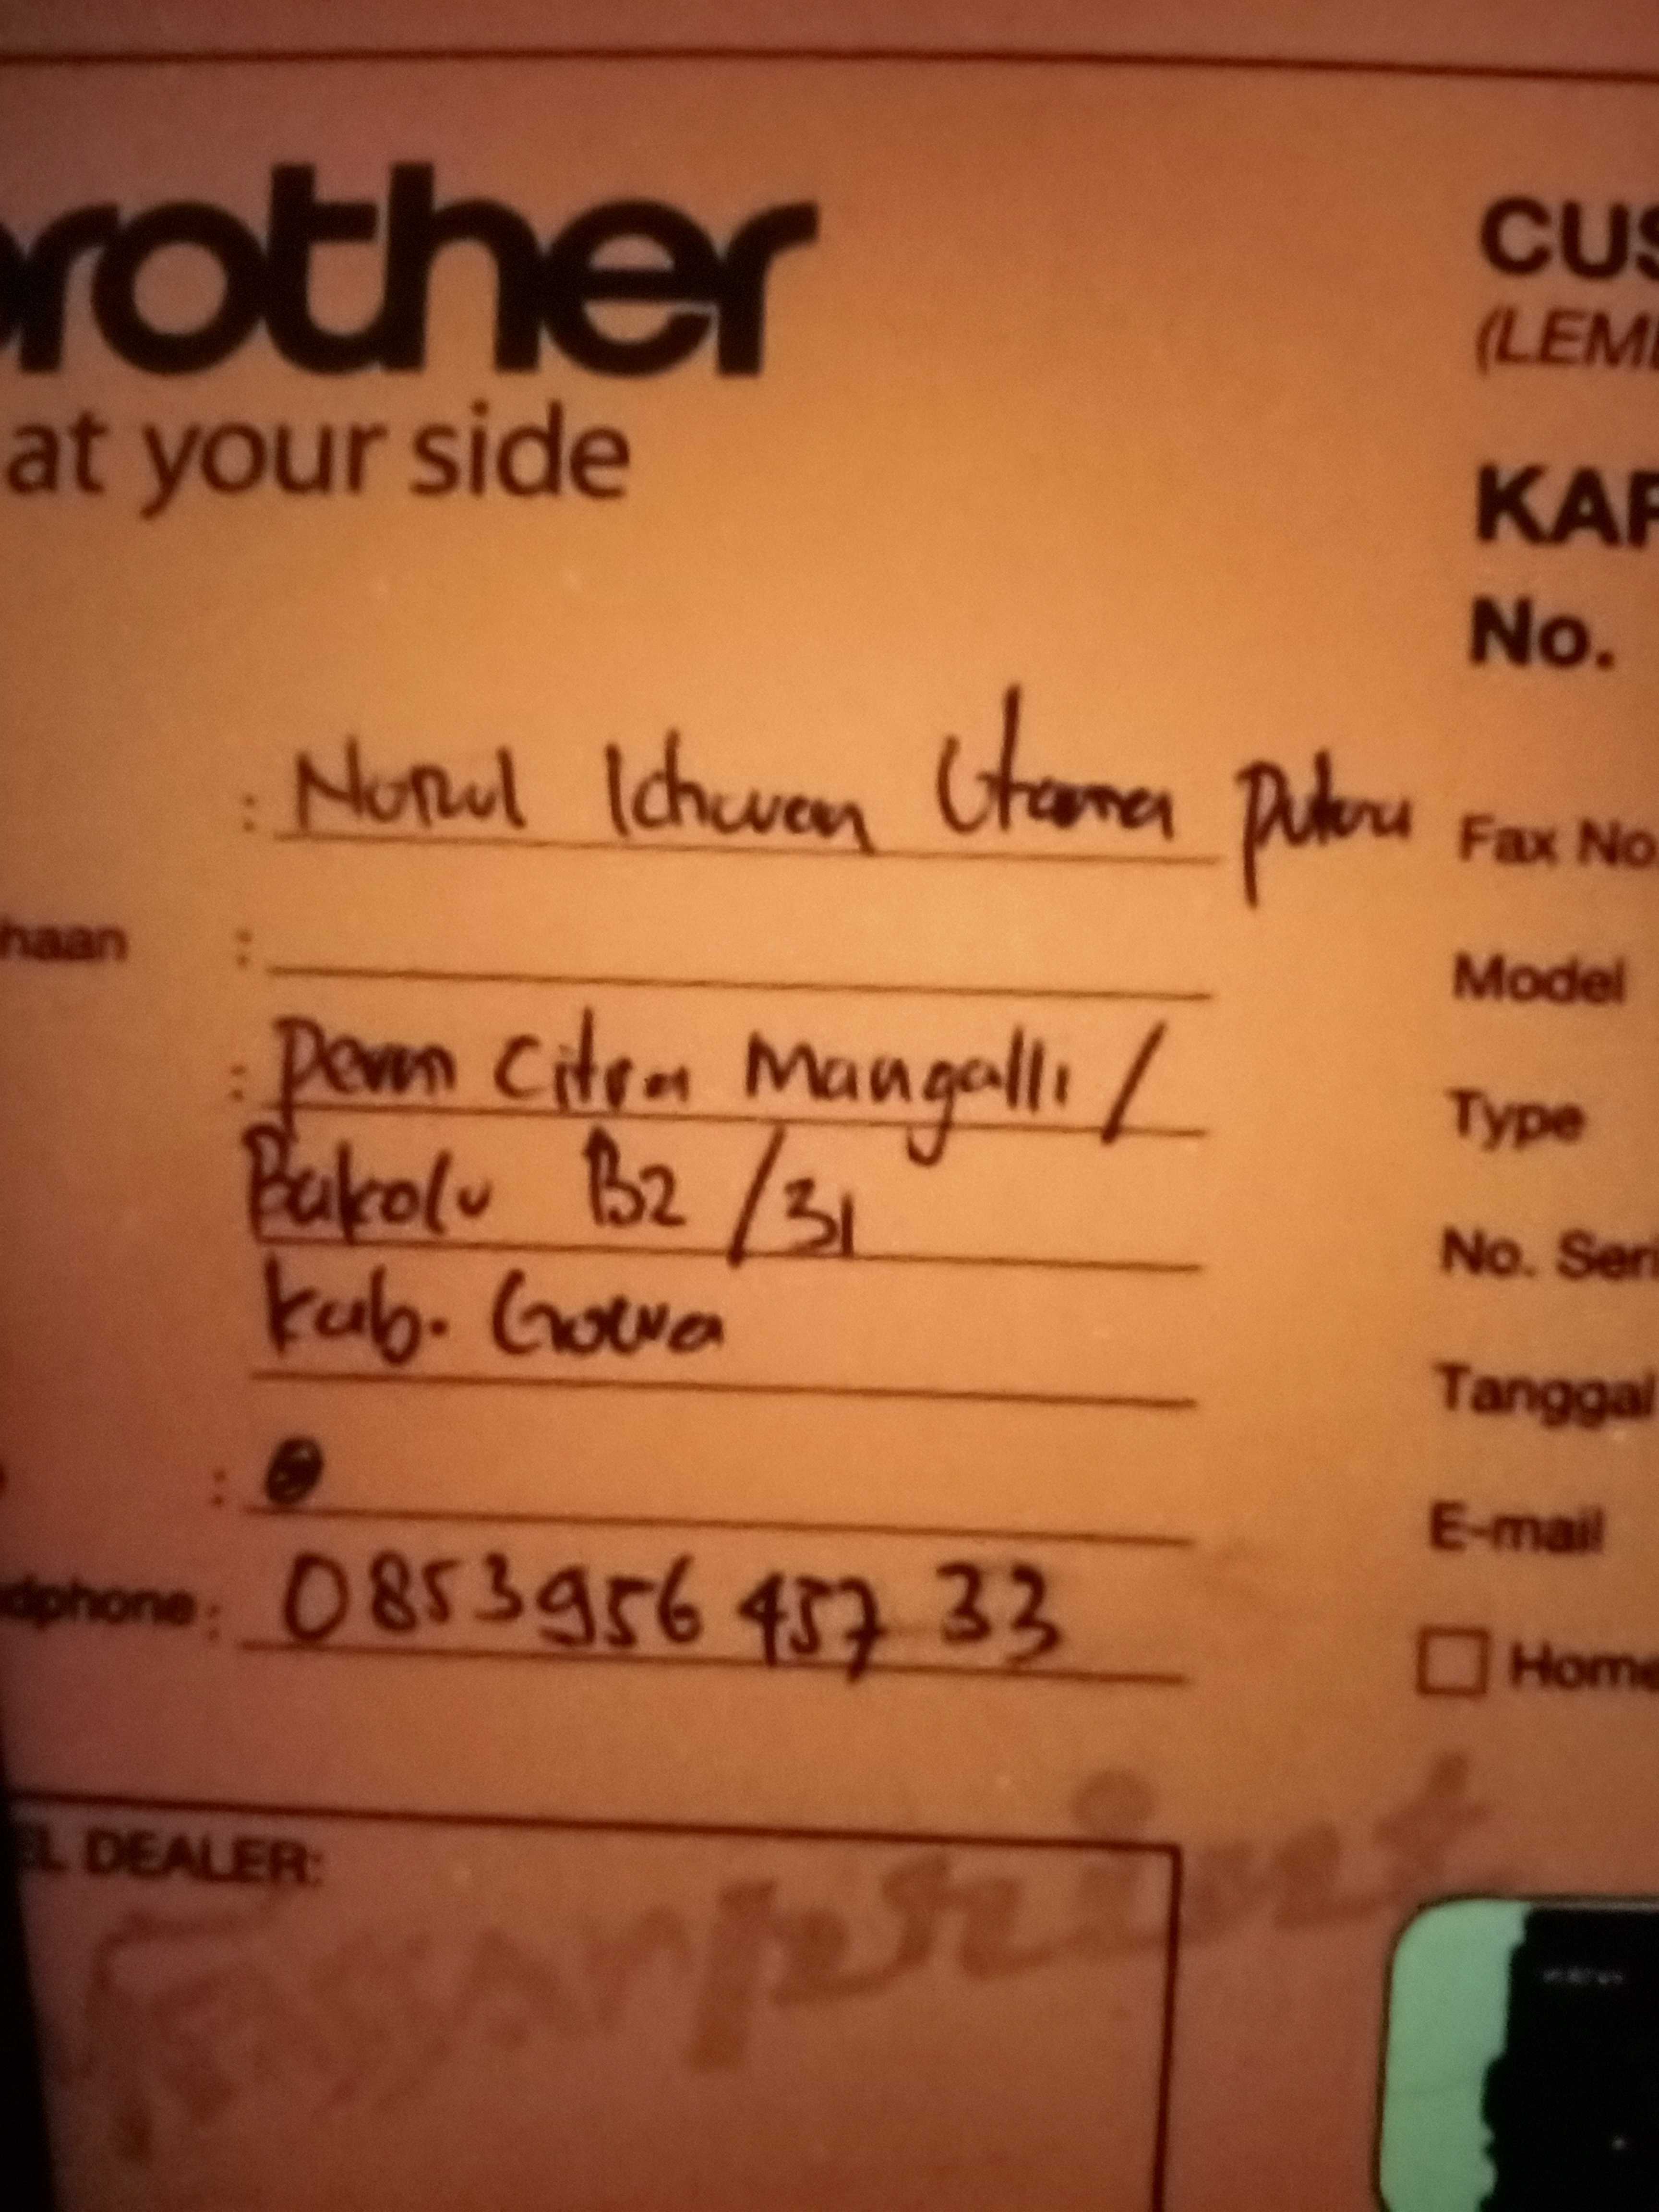 brother
at your side
CUS
(LEM
KAR
No.
: Nurul Ichwan Utama putra
Fax No
haan :
Model
: perm Citra Mangalli /
Type
Bakolu B2 / 31
No. Seri
kab. Gowa
Tanggal
:
E-mail
dphone : 0853956 457 33
Home
EL DEALER: